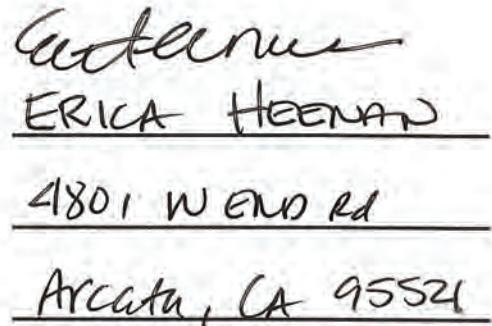 ERICA HEENAN
4801 W END Rd
Arcata, CA 95521